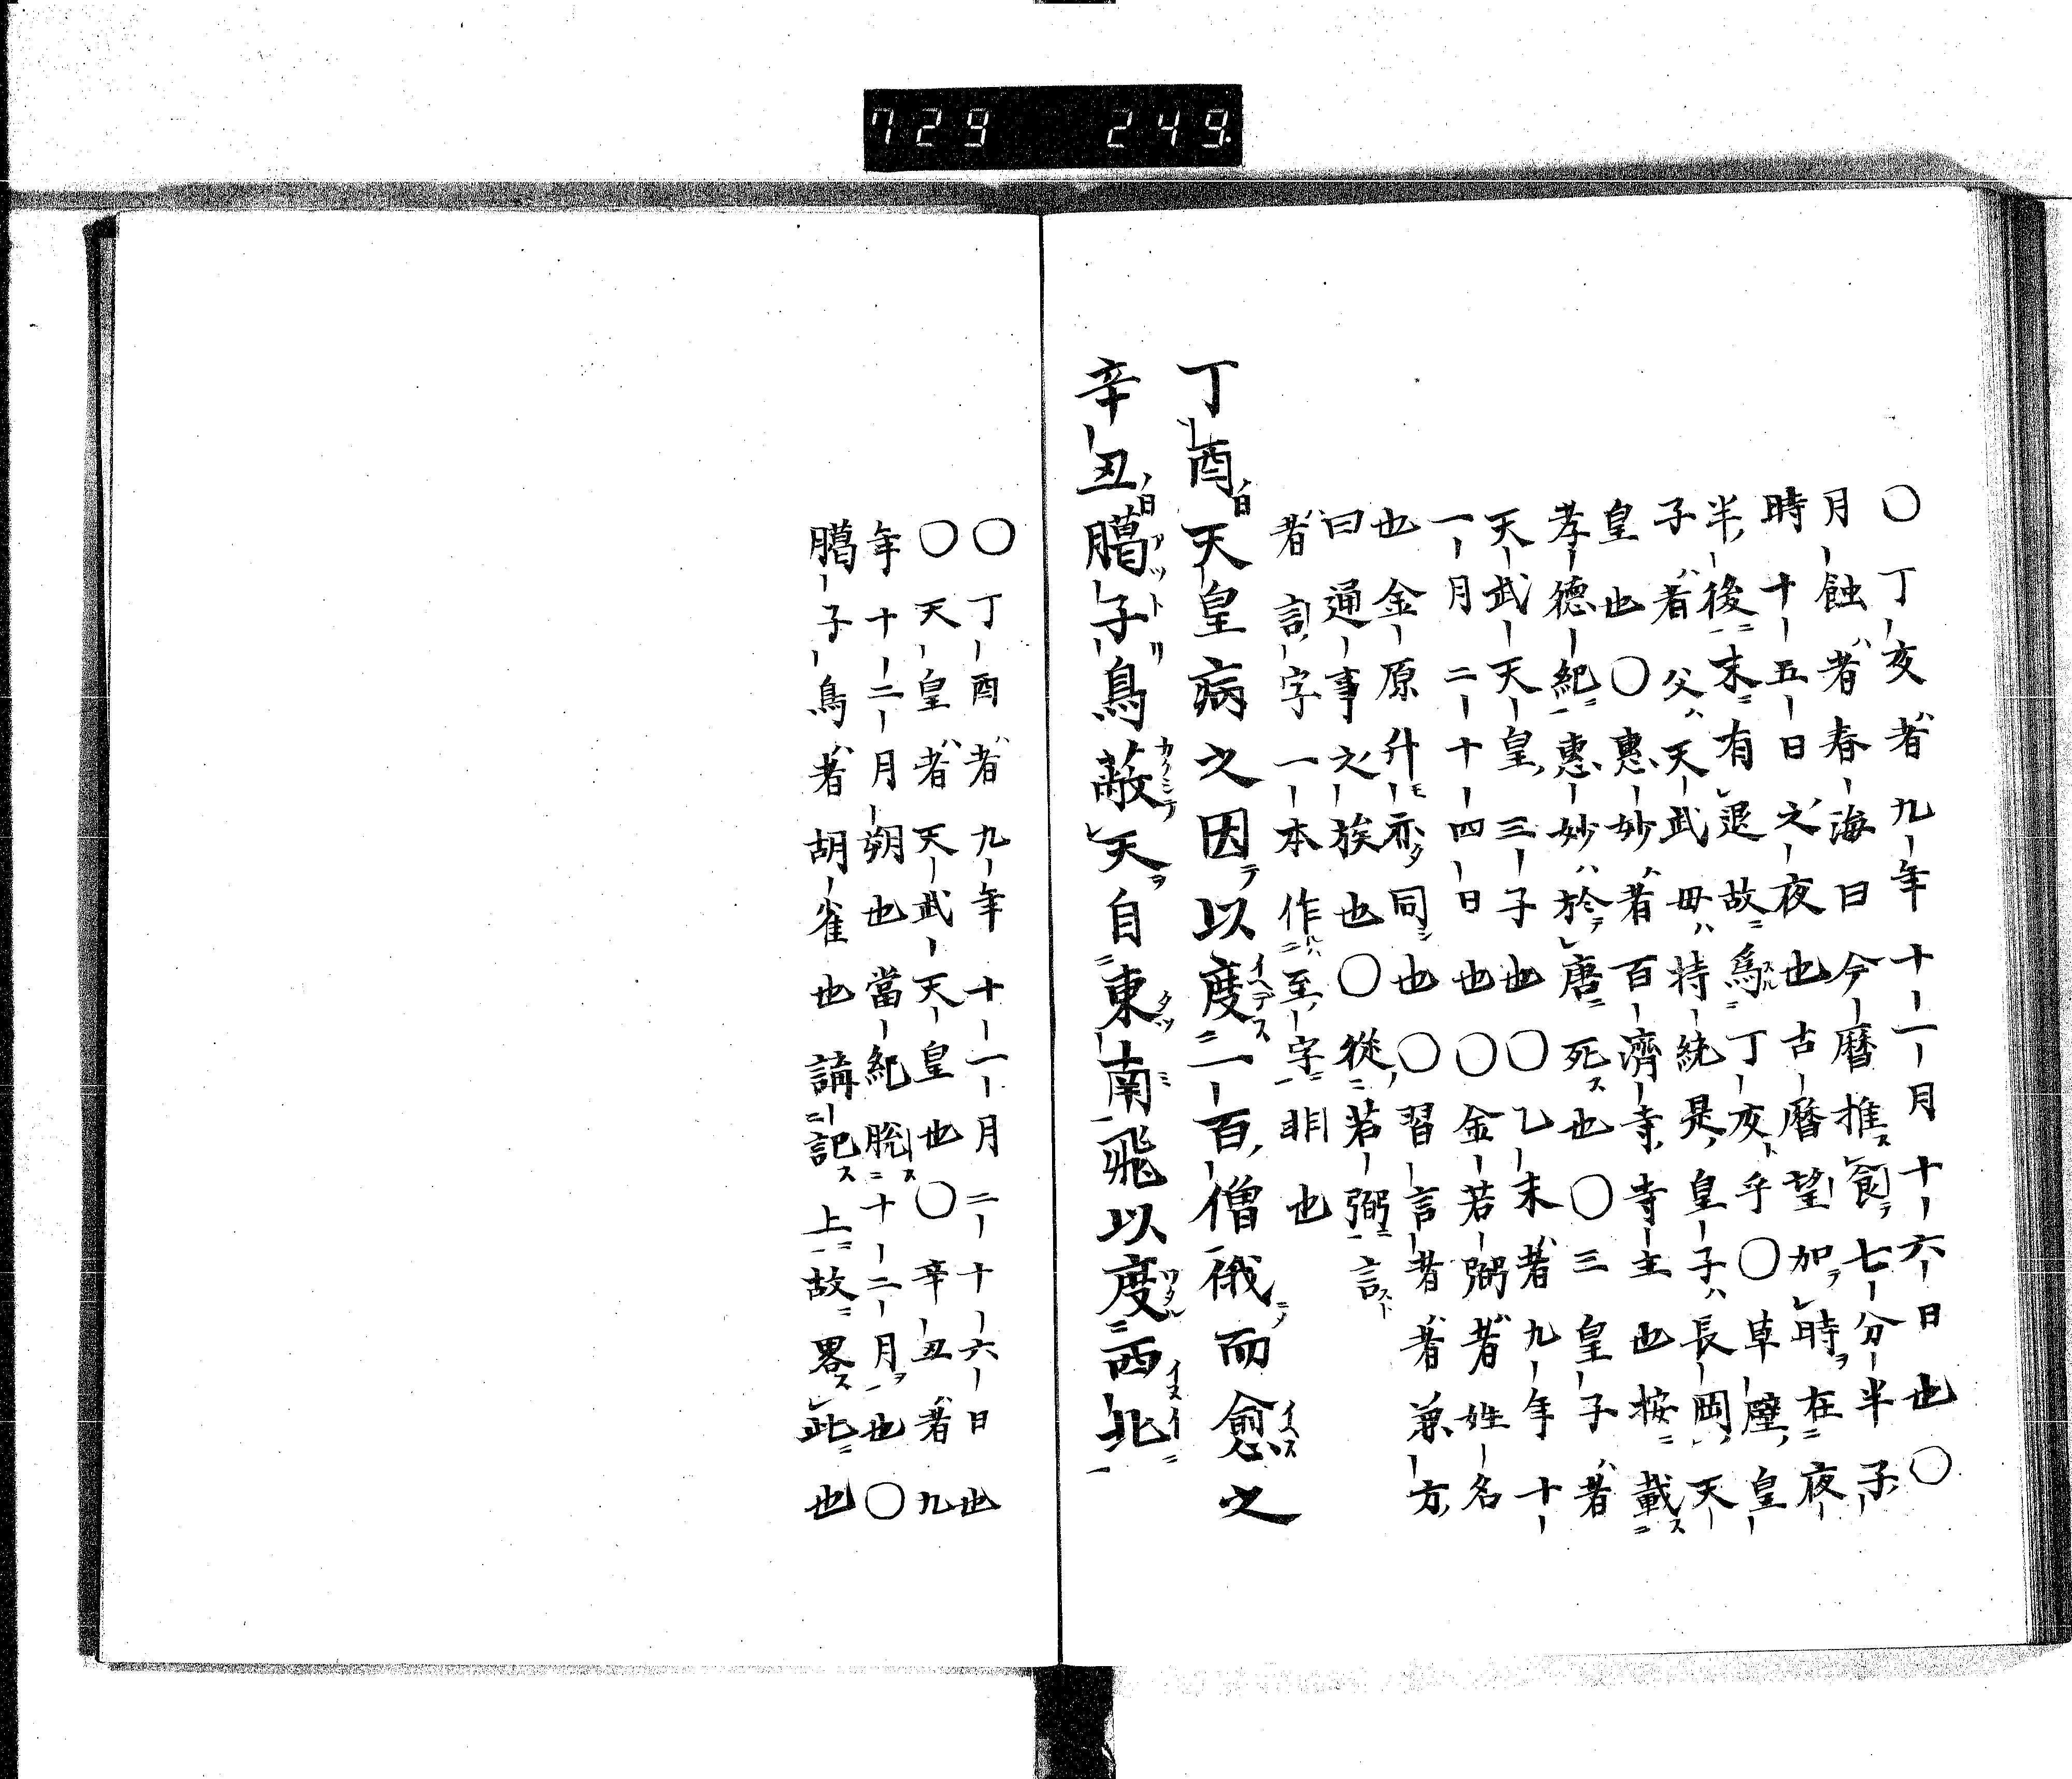 729 249.
〇丁亥者九年十一月十六日也〇
月蝕者春海曰今暦推食七分半子
時十五日之夜也古暦望加時在夜
半後末有退故爲丁亥乎〇草壁皇
子者父天武母持統是皇子長岡天
皇也〇惠妙者百濟寺寺主也按載
孝德紀惠妙於唐死也〇三皇子者
天武天皇三子也〇乙未者九年十
一月二十四日也〇金若弼者姓名
也金原升亦同也〇習言者者兼方
曰通事之族也〇從若弼言
者言字一本作至字非也
丁酉天皇病之因以度一百僧俄而愈之
辛丑臈子鳥蔽天自東南飛以度西北
〇丁酉者九年十一月二十六日也
〇天皇者天武天皇也〇辛丑者九
年十二月朔也當紀脫十二月也〇
臈子鳥者胡雀也講記上故畧此也